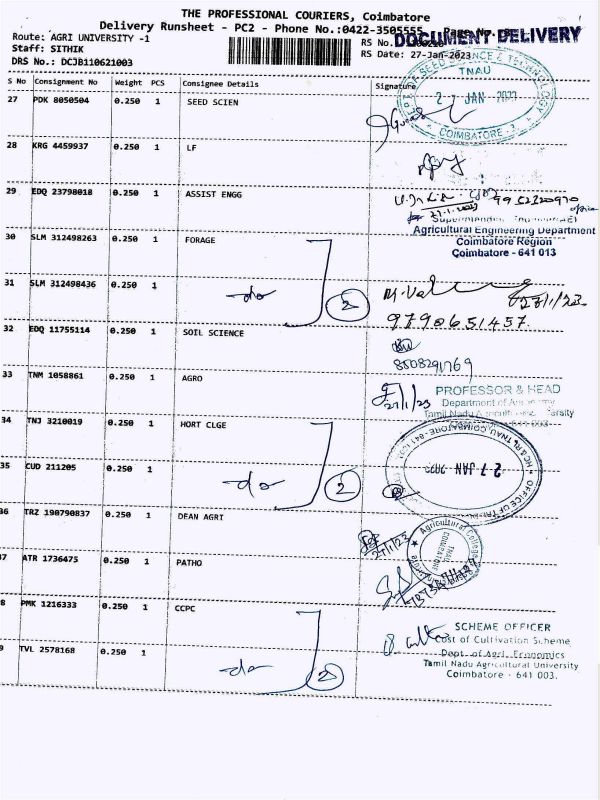 THE PROFESSIONAL COURIERS, Coimbatore
Delivery Runsheet - PC2 - Phone No.:0422-3505555
DOCUMENT DELIVERY
Route: AGRI UNIVERSITY -1
RS No.:
Staff: SITHIK
RS Date: 27-Jan-2023
DRS No.: DCJB110621003
S No Consignment No Weight PCS Consignee Details Signature
TNAU
27 JAN 2023
COIMBATORE - 3
27 PDK 8050504 0.250 1 SEED SCIEN
28 KRG 4459937 0.250 1 LF
29 EDQ 23798018 0.250 1 ASSIST ENGG
9952320970
27-1-2023
Agricultural Engineering Department
Coimbatore Region
Coimbatore - 641 013
30 SLM 312498263 0.250 1 FORAGE
31 SLM 312498436 0.250 1 do 2
27/1/23
9790651457
32 EDQ 11755114 0.250 1 SOIL SCIENCE
8508291769
33 TNM 1058861 0.250 1 AGRO
27/1/23
PROFESSOR & HEAD
34 TNJ 3210019 0.250 1 HORT CLGE
35 CUD 211205 0.250 1 do 2
27 JAN 2023
36 TRZ 190790837 0.250 1 DEAN AGRT
27/1/23
Agricultural College
COIMBATORE
37 ATR 1736475 0.250 1 PATHO
8 PMK 1216333 0.250 1 CCPC
9 TVL 2578168 0.250 1 do 2
SCHEME OFFICER
Cost of Cultivation Scheme
Dept. of Agri. Economics
Tamil Nadu Agricultural University
Coimbatore - 641 003.